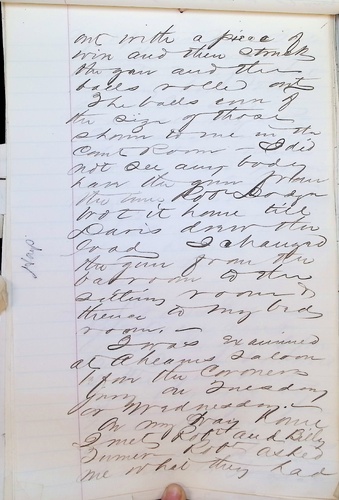 out with a piece of
wire and then struck
the gun and the
balls rolled out
The balls run of
the size of those
shown to me in the
Court Room - I did
not see any body
have the gun from
the time Rob
bro't it home till
Davis drew the
load I changed
the gun from the
bar room to the
sitting room &
thence to my bed
room. -
I was examined
at Ahearns Saloon
before the Coroners
Jury on Tuesday
or Wednesday. -
On my way home
I met Rob and Billy
Turner Rob asked
me what they had
Hays